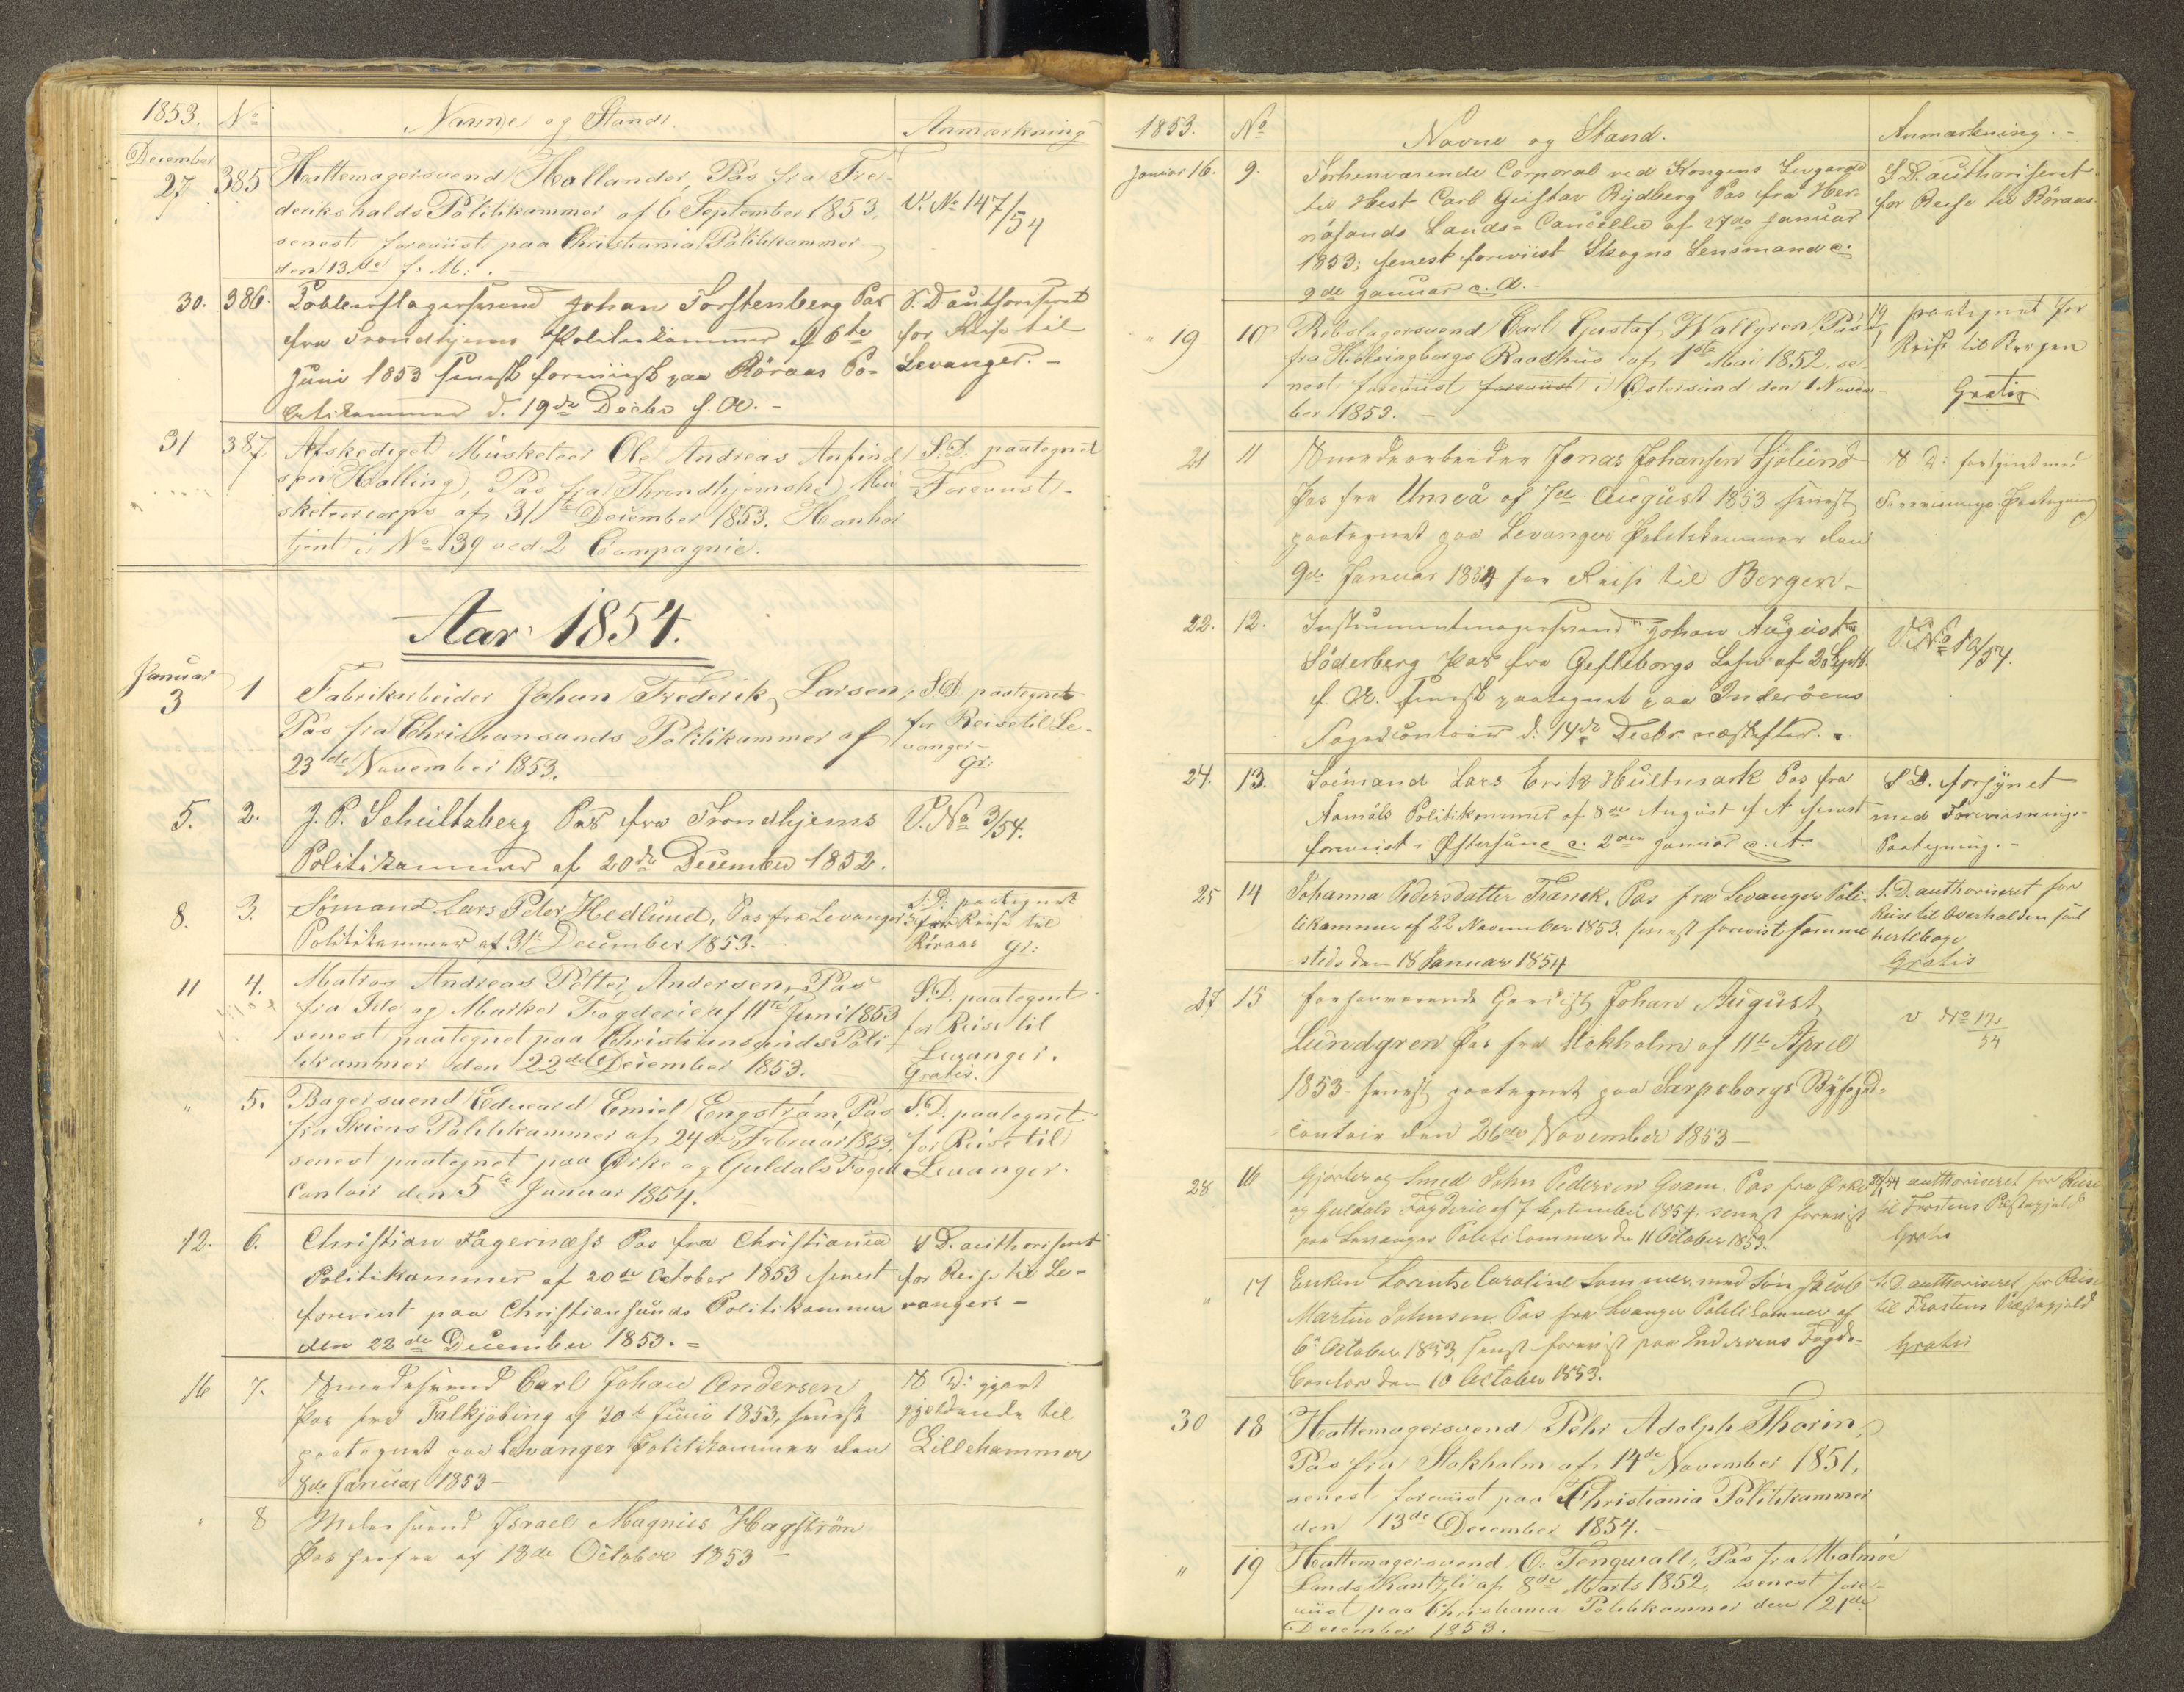 1853. No Navne og Stand. Anmærkning
December
27 385 Hattemagersvend Hollander, Pas fra Fre-
deriks halds Politikammer af 6 September 1853, V. No 147/54
senest foreviist paa Christiania Politikammer
den 13de f. M.
30. 386. Johan Torstenberg Pas S. D. authoriseret
fra Trondhjems Politiekammer af 6te for Reise til
Juni 1853 senest foreviist paa Röraas Po- Levanger. -
litikammer d. 19de Decbr f. A. -
31 387 Afskediget Musketeer Ole Andreas Anfind S. D. paategnet
sen Halling, Pas fra Throndhjemske Mu Foreviist.
sketeercorps af 31te December 1853. Han har
tjent i No 139 ved 2 Compagnie.
Aar 1854.
Januar
3 1 Fabrikarbeider Johan Frederik Larsen, S. D. paategnet
Pas fra Christiansands Politikammer af for Reise til Le-
23de November 1853. vanger - gr:
5. 2. J. P. Schultzberg Pas fra Trondhjems V. No 3/54.
Politikammer af 20de December 1852.
8. 3. Sömand Lars Peter Hedlund, Pas fra Levanger S. D. paategnet for Reise til
Politikammer af 31te December 1853. - Röraas gr:
11 4. Matros Andreas Petter Andersen, Pas S. D. paategnet
fra Ide og Marker Fogderie af 11te Juni 1853 for Reise til
senest paategnet paa Christiansunds Poli- Levanger.
tikammer den 22de December 1853. Gratis.
" 5. Bagersvend Edward Emiel Engström, Pas S. D. paategnet
fra Skiens Politikammer af 24de Februar 1853, for Reise til
senest paategnet paa Örke og Guldals Foged Levanger.
Contoir den 5te Januar 1854.
12. 6. Christian Fagernæss Pas fra Christiania S D. authoriseret
Politikammer af 20de October 1853 senest for Reise til Le-
foreviist paa Christiansunds Politikammer vanger. -
den 22de December 1853. =
16 7. Smedesvend Carl Johan Andersen S D: gjort
Pas fra Falkjöbing af 30te Juni 1853, senest gjeldende til
paategnet paa Levanger Politikammer den Lillehammer
8de Januar 1853 -
" 8 Malersvend Israel Magnus Hagström
Pas herfra af 18de October 1853 -
1853. No Navne og Stand. Anmærkning. -
Januar 16. 9. Forhenværende Corporal ved Kongens Livgarde S D. authoriseret
til Hest Carl Gustav Rydberg Pas fra Her- for Reise til Röraas
nösands Lands-Cancellie af 27de Januar
1853; senest foreviist Skogns Lensmand d.
9de Januar d. A. -
" 19 10 Rebslagersvend Carl Gustaf Wallgren, Pas 19/1 paategnet for
fra Helsingborgs Raadhus af 1ste Mai 1852, se- Reise til Bergen
nest foreviist foreviist i Östersund den 1 Novem- Gratis
ber 1853. -
21 11 Smedearbeider Jonas Johansen Sjölund S D: forsynet med
Pas fra Umeå af 7de August 1853 senest Forevisnings Paategning
paategnet paa Levanger Politikammer den
9de Januar 1854 for Reise til Bergen -
22. 12. Instrumentmagersvend Johan August V. No 10/54.
Söderberg Pas fra Gefleborgs Lehn af 2 Septb.
f. A. senest paategnet paa Inderöens
Fogedcontoir d. 14de Decbr. næstefter.
24. 13. Soemand Lars Erik Hultmark Pas fra S D. forsynet
Åmåls Politikammer af 8de August f A senest med Forevisnings-
foreviist i Östersund d. 2den Januar d. A. Paategning. -
25 14 Johanna Pedersdatter Franck, Pas fra Levanger Poli- S. D. authoriseret for
tikammer af 22 November 1853. senest foreviist samme Reise til Overhalden samt
steds den 18 Januar 1854 hertilbage
Gratis
27 15 forhenværende Gardist Johan August V No 12/54
Lundgren Pas fra Stokholm af 11te April
1853 - senest paategnet paa Sarpsborgs Byfoged-
contoir den 26de November 1853 -
28 16 Gjörtler og Smed John Pedersen Gram. Pas fra Örke 28/1 54 authoriseret for Reise
og Guldals Fogderie af 7 September 1854, senest foreviist til Frostens Præstegjeld
paa Levanger Politikammer den 11 October 1853. Gratis
" 17 Enken Lorentse Caroline Sommer, med Sön Jacob S. D. authoriseret for Reise
Martin Johnsen. Pas fra Levanger Politikammer af til Frostens Præstegjeld
6te October 1853, senest foreviist paa Inderöens Fogde- Gratis
Contor den 10 October 1853.
30 18 Hattemagersvend Pehr Adolph Thorin,
Pas fra Stokholm af 14de November 1851,
senest foreviist paa Christiania Politikammer
den 13de December 1854. -
" 19 Hattemagersvend O. Tengwall, Pas fra Malmöe
Lands Kantzli af 8de Marts 1852, senest fore-
viist paa Christiania Politikammer den 21de
December 1853. -